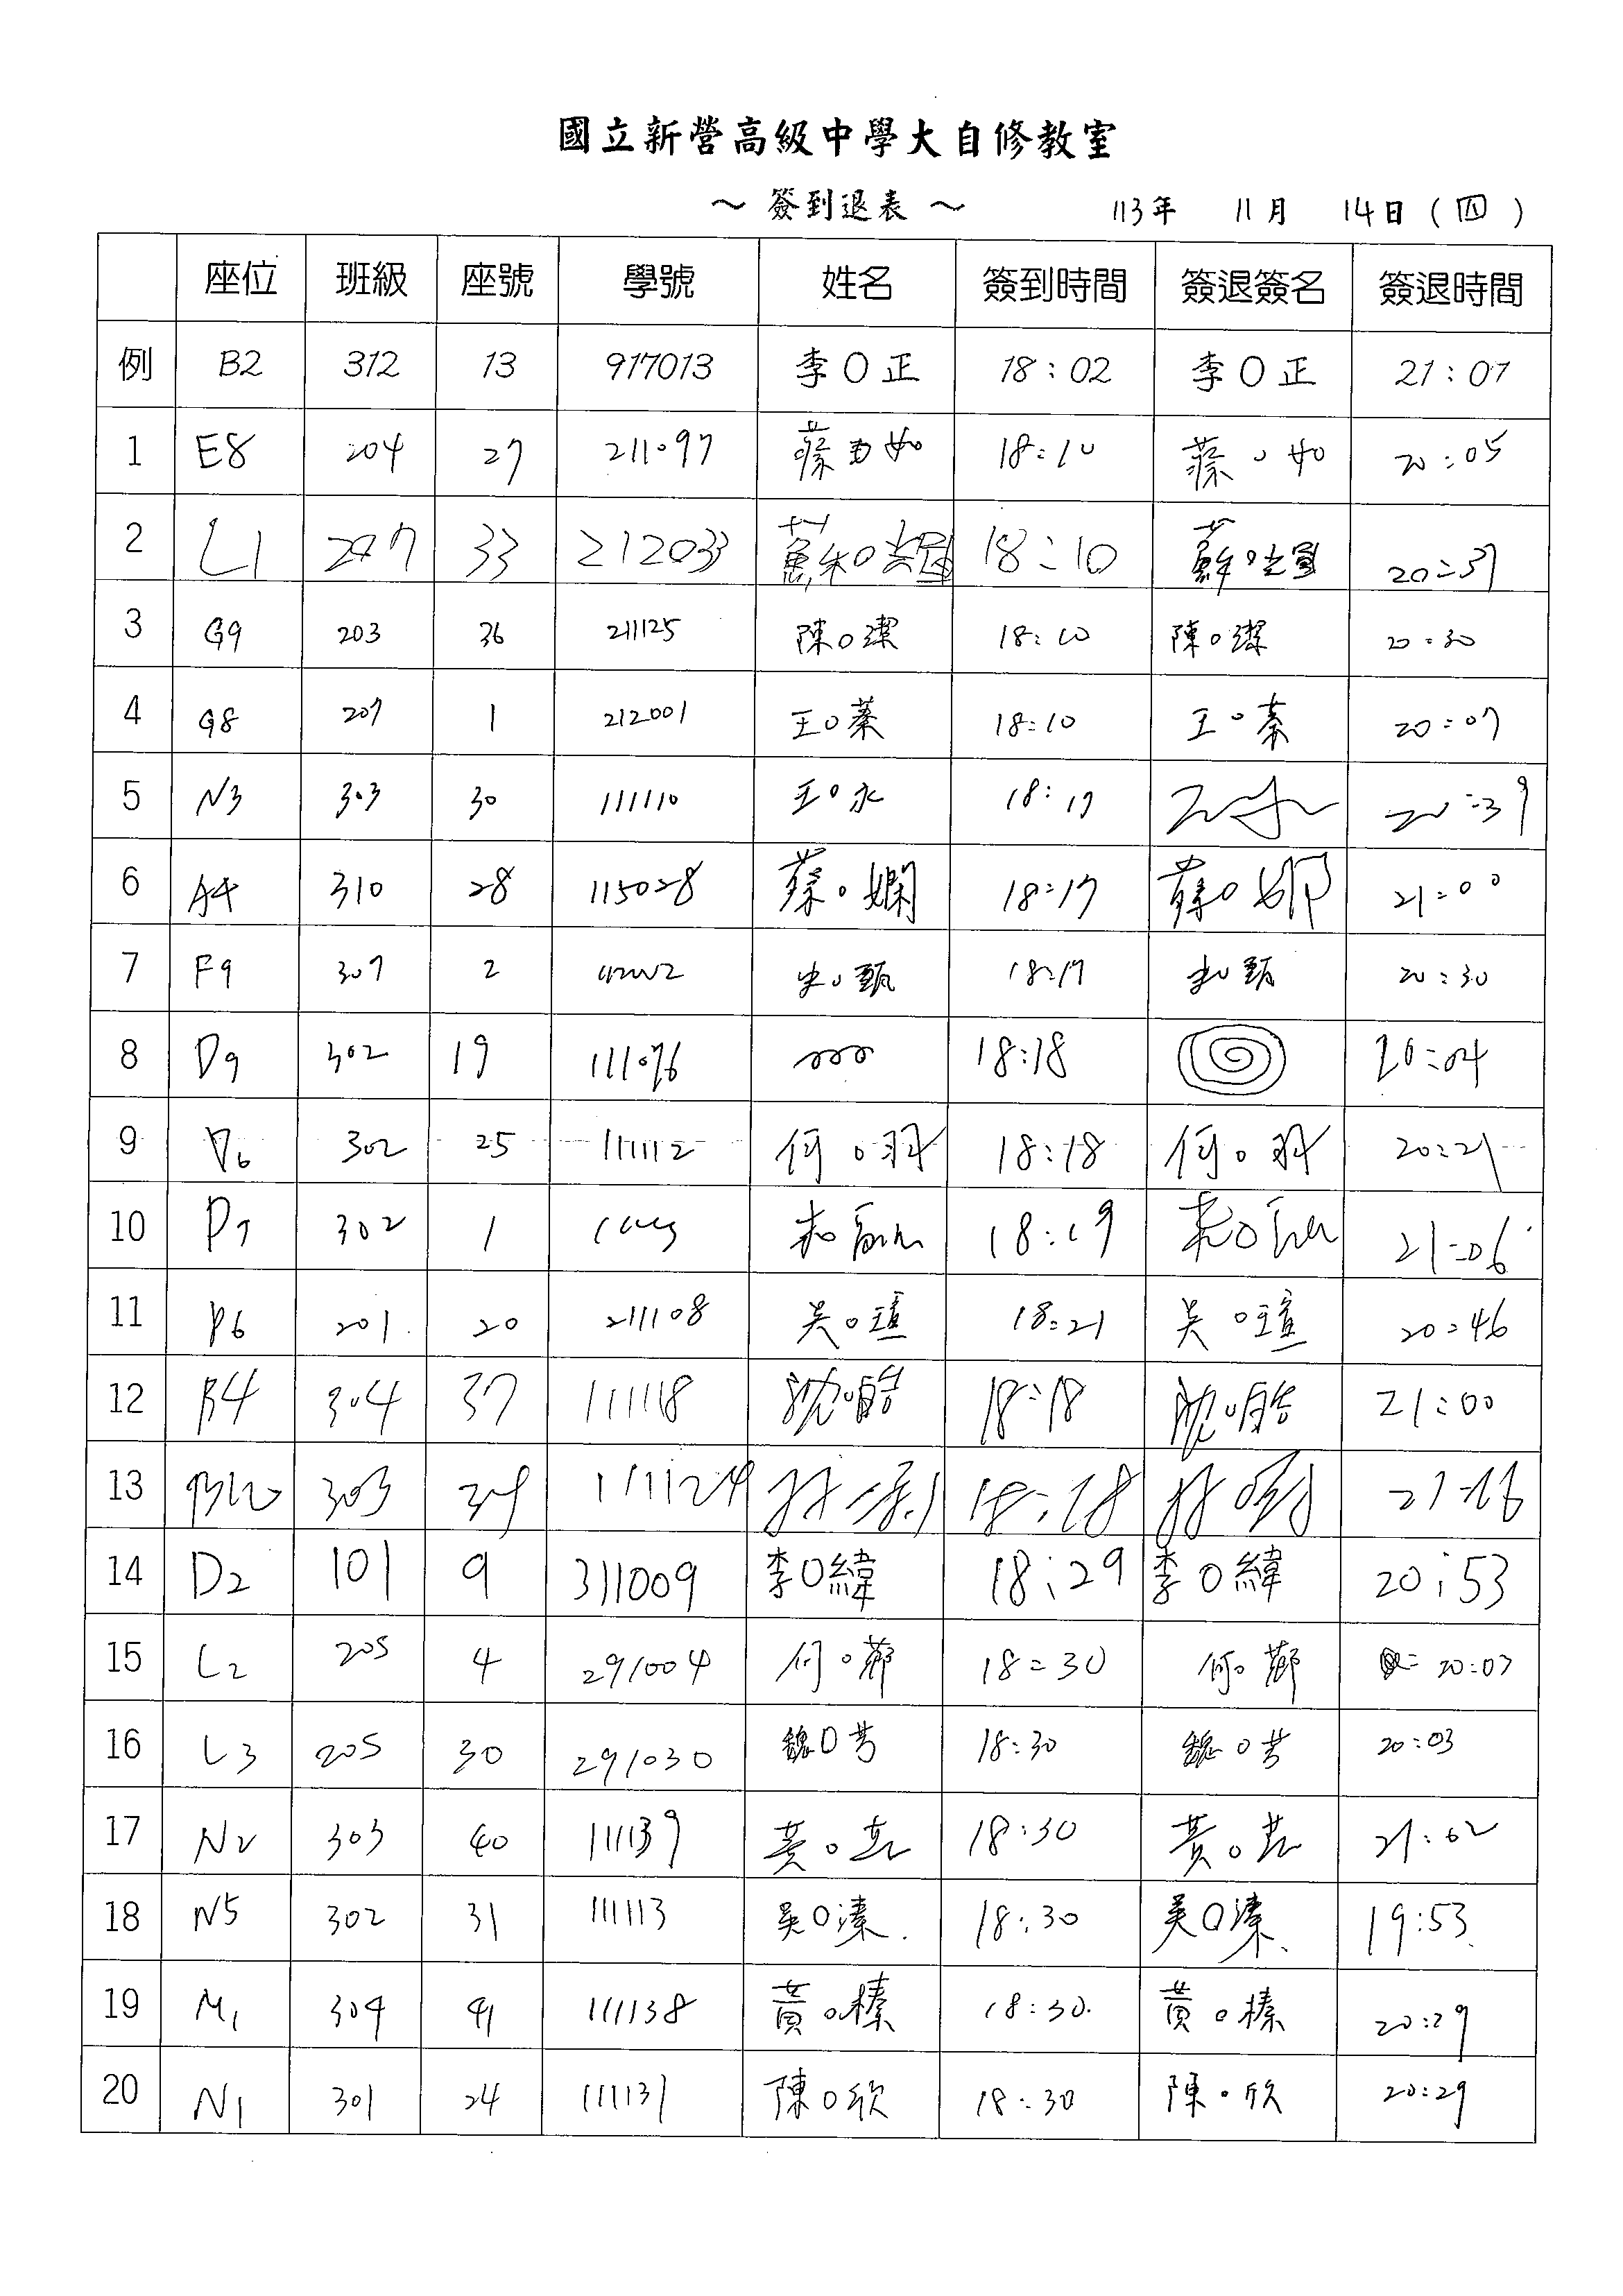 國立新營高級中學大自修教室
～ 簽到退表 ～ 113年 11月 14日 (四)
座位 班級 座號 學號 姓名 簽到時間 簽退簽名 簽退時間
例 B2 312 13 917013 李O正 18:02 李O正 21:07
1 E8 204 27 211097 蔡 如 18:10 蔡O如 20:05
2 L1 207 33 212033 蘇O 18:10 蘇O 20:37
3 G9 203 36 211125 陳O潔 18:10 陳O潔 20:30
4 G8 207 1 212001 王O蓁 18:10 王O蓁 20:07
5 N3 303 30 111110 王O永 18:17 20:39
6 A4 310 28 115028 蔡O嫻 18:17 蔡O 21:00
7 F9 307 2 O甄 18:17 O甄 20:30
8 D9 302 19 111076 18:18 20:04
9 D6 302 25 111112 何O羽 18:18 何O羽 20:21
10 P7 302 1 18:19 21:06
11 P6 201 20 211108 吳O瑄 18:21 吳O瑄 20:46
12 B4 304 37 111118 沈O皓 18:18 沈O皓 21:00
13 B10 303 34 111124 林O 18:18 林O 21:16
14 D2 101 9 311009 李O緯 18:29 李O緯 20:53
15 L2 205 4 291004 何O 18:30 何O 20:07
16 L3 205 30 291030 魏O芳 18:30 魏O芳 20:03
17 N2 303 40 111139 黃O 18:30 黃O 21:02
18 N5 302 31 111113 吳O溱 18:30 吳O溱 19:53
19 M1 304 41 111138 黃O榛 18:30 黃O榛 20:29
20 N1 301 24 111131 陳O欣 18:30 陳O欣 20:29